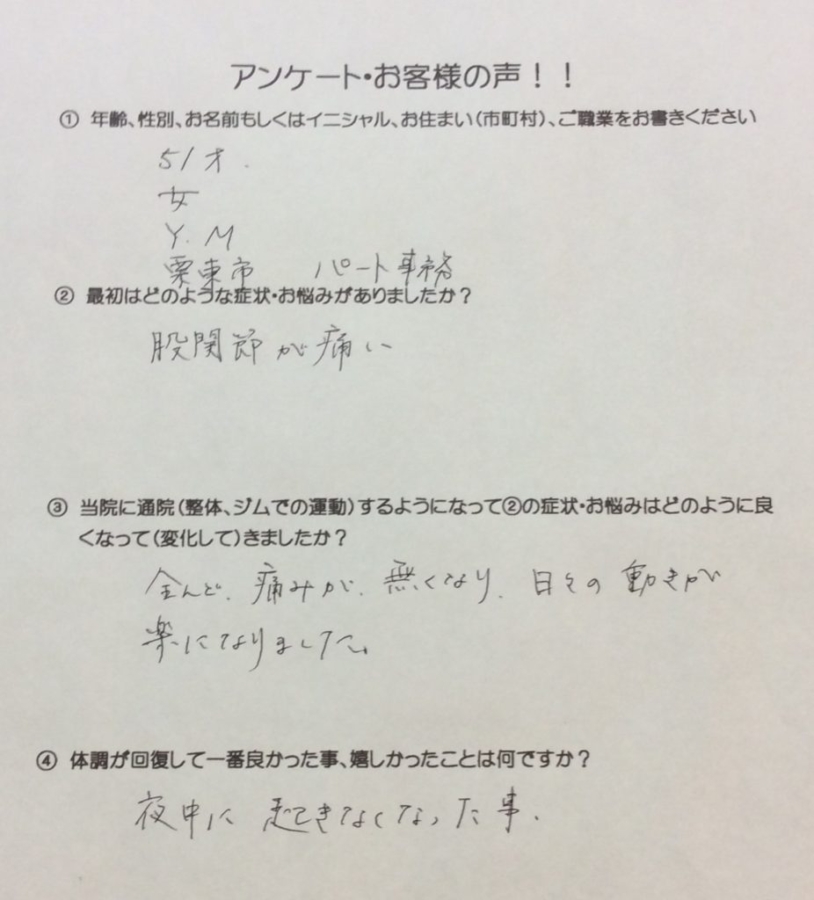 アンケート・お客様の声！！
① 年齢、性別、お名前もしくはイニシャル、お住まい（市町村）、ご職業をお書きください
51才.
女
Y.M
栗東市　パート事務
② 最初はどのような症状・お悩みがありましたか？
股関節が痛い
③ 当院に通院（整体、ジムでの運動）するようになって②の症状・お悩みはどのように良
くなって（変化して）きましたか？
全んど、痛みが、無くなり、日々の動きが
楽になりました。
④ 体調が回復して一番良かった事、嬉しかったことは何ですか？
夜中に起きなくなった事.